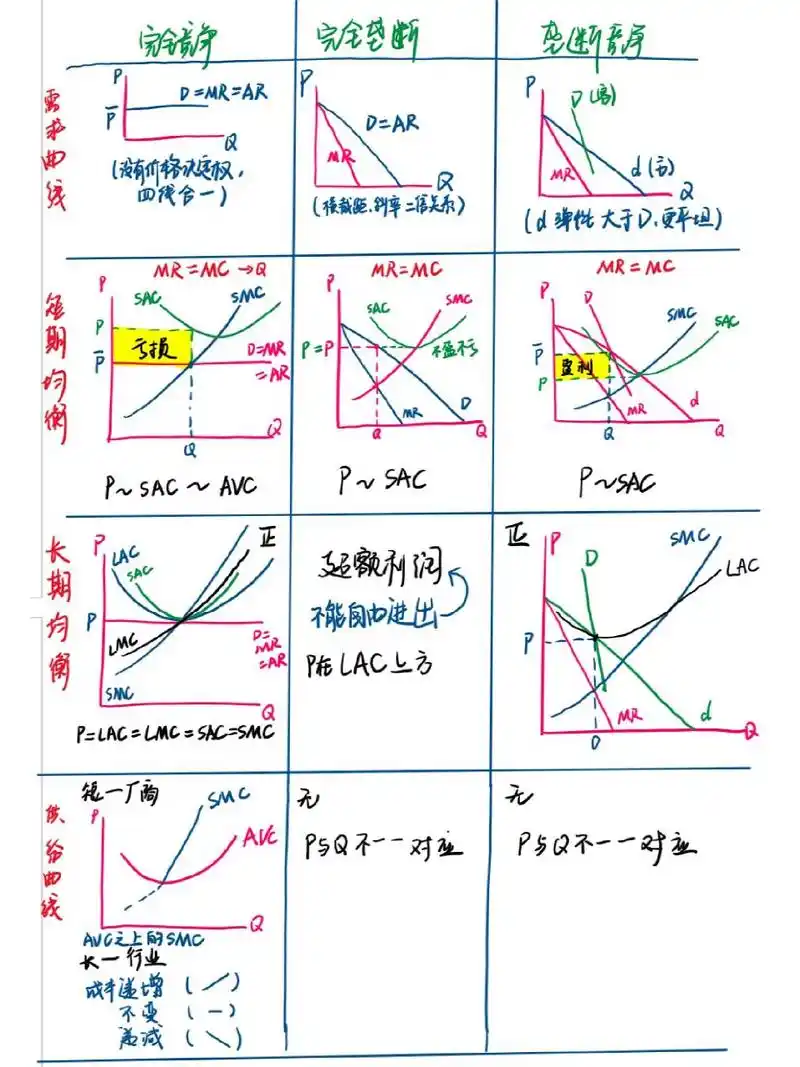 完全竞争
完全垄断
垄断竞争
需求曲线
P
P̄
D=MR=AR
Q
(没有价格决定权,
四线合一)
P
D=AR
MR
Q
(横截距、斜率二倍关系)
P
D(高)
MR
d(高)
Q
(d弹性大于D,更平坦)
短期均衡
MR=MC→Q
P
SAC
SMC
P
P̄
亏损
D=MR
=AR
Q
Q
P~SAC~AVC
MR=MC
P
SAC
SMC
P=P
不盈不亏
MR
D
Q
Q
P~SAC
MR=MC
P
D
SMC
SAC
P̄
P
盈利
MR
d
Q
Q
P~SAC
长期均衡
P
LAC
SAC
正
P
LMC
SMC
D=
MR
=AR
Q
P=LAC=LMC=SAC=SMC
超额利润
不能自由进出
P在LAC上方
正
P
D
SMC
LAC
P
MR
d
Q
Q
供给曲线
短一厂商
P
SMC
AVC
Q
AVC之上的SMC
长一行业
成本递增 (／)
不变 (—)
递减 (＼)
无
P与Q不一一对应
无
P与Q不一一对应